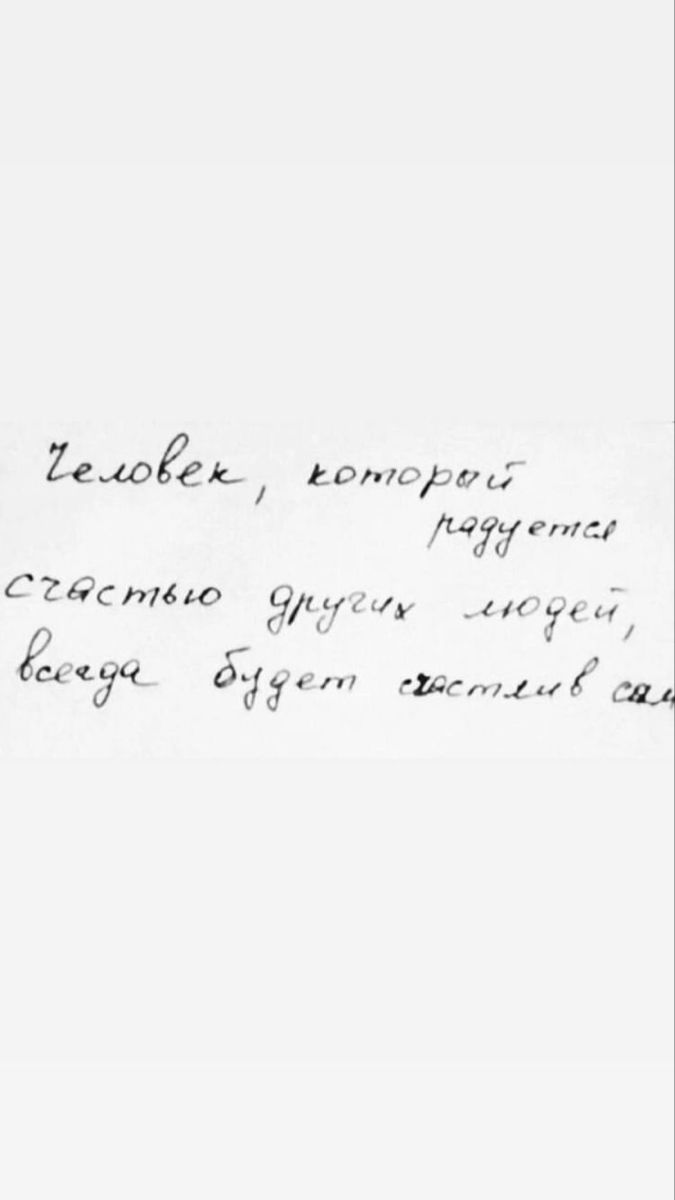 Человек, который
радуется
счастью других людей,
всегда будет счастлив сам